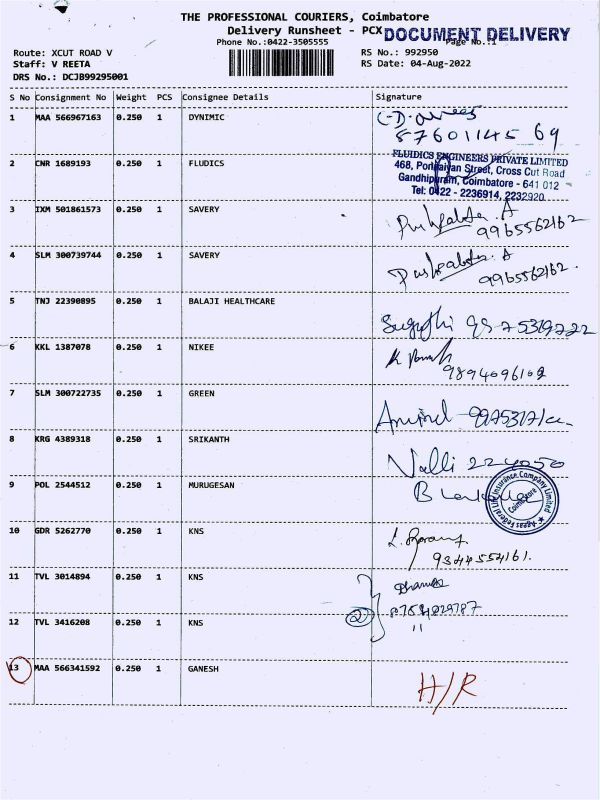 THE PROFESSIONAL COURIERS, Coimbatore
Delivery Runsheet - PCX DOCUMENT DELIVERY
Phone No.:0422-3505555 Page No.:1
Route: XCUT ROAD V RS No.: 992950
Staff: V REETA RS Date: 04-Aug-2022
DRS No.: DCJB99295001
S No Consignment No Weight PCS Consignee Details Signature
1 MAA 566967163 0.250 1 DYNIMIC
8760114569
2 CNR 1689193 0.250 1 FLUDICS
FLUIDICS ENGINEERS PRIVATE LIMITED
468, Street, Cross Cut Road
Gandhipuram, Coimbatore - 641 012
Tel: 0422 - 2236914, 2232920
3 IXM 501861573 0.250 1 SAVERY
9965562162
4 SLM 300739744 0.250 1 SAVERY
9965562162.
5 TNJ 22390895 0.250 1 BALAJI HEALTHCARE
6 KKL 1387078 0.250 1 NIKEE
9894096102
7 SLM 300722735 0.250 1 GREEN
8 KRG 4389318 0.250 1 SRIKANTH
Nalli
9 POL 2544512 0.250 1 MURUGESAN
B
Ageas Federal Life Insurance Company Limited
Coimbatore
10 GDR 5262770 0.250 1 KNS
9344554161.
11 TVL 3014894 0.250 1 KNS
12 TVL 3416208 0.250 1 KNS
2
"
13 MAA 566341592 0.250 1 GANESH
H/R